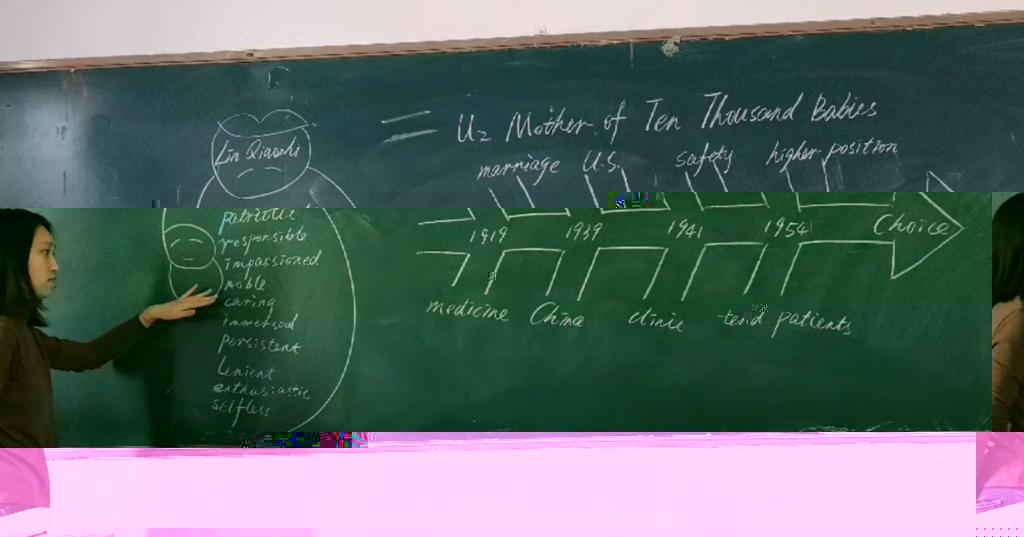 U2 Mother of Ten Thousand Babies
Lin Qiaozhi
marriage U.S. safety higher position
patriotic
responsible
impassioned
noble
caring
immersed
persistent
lenient
enthusiastic
selfless
1919 1939 1941 1954 Choice
medicine China clinic tend patients